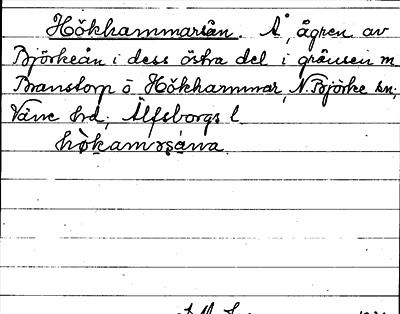 Hökhammarsån. Å, ågren av
Björkeån i dess östra del i gränsen m
Branstorp o. Hökhammar, N. Björke sn,
Väne hd, Älfsborgs l.
hǫ̀kamɔṣána.